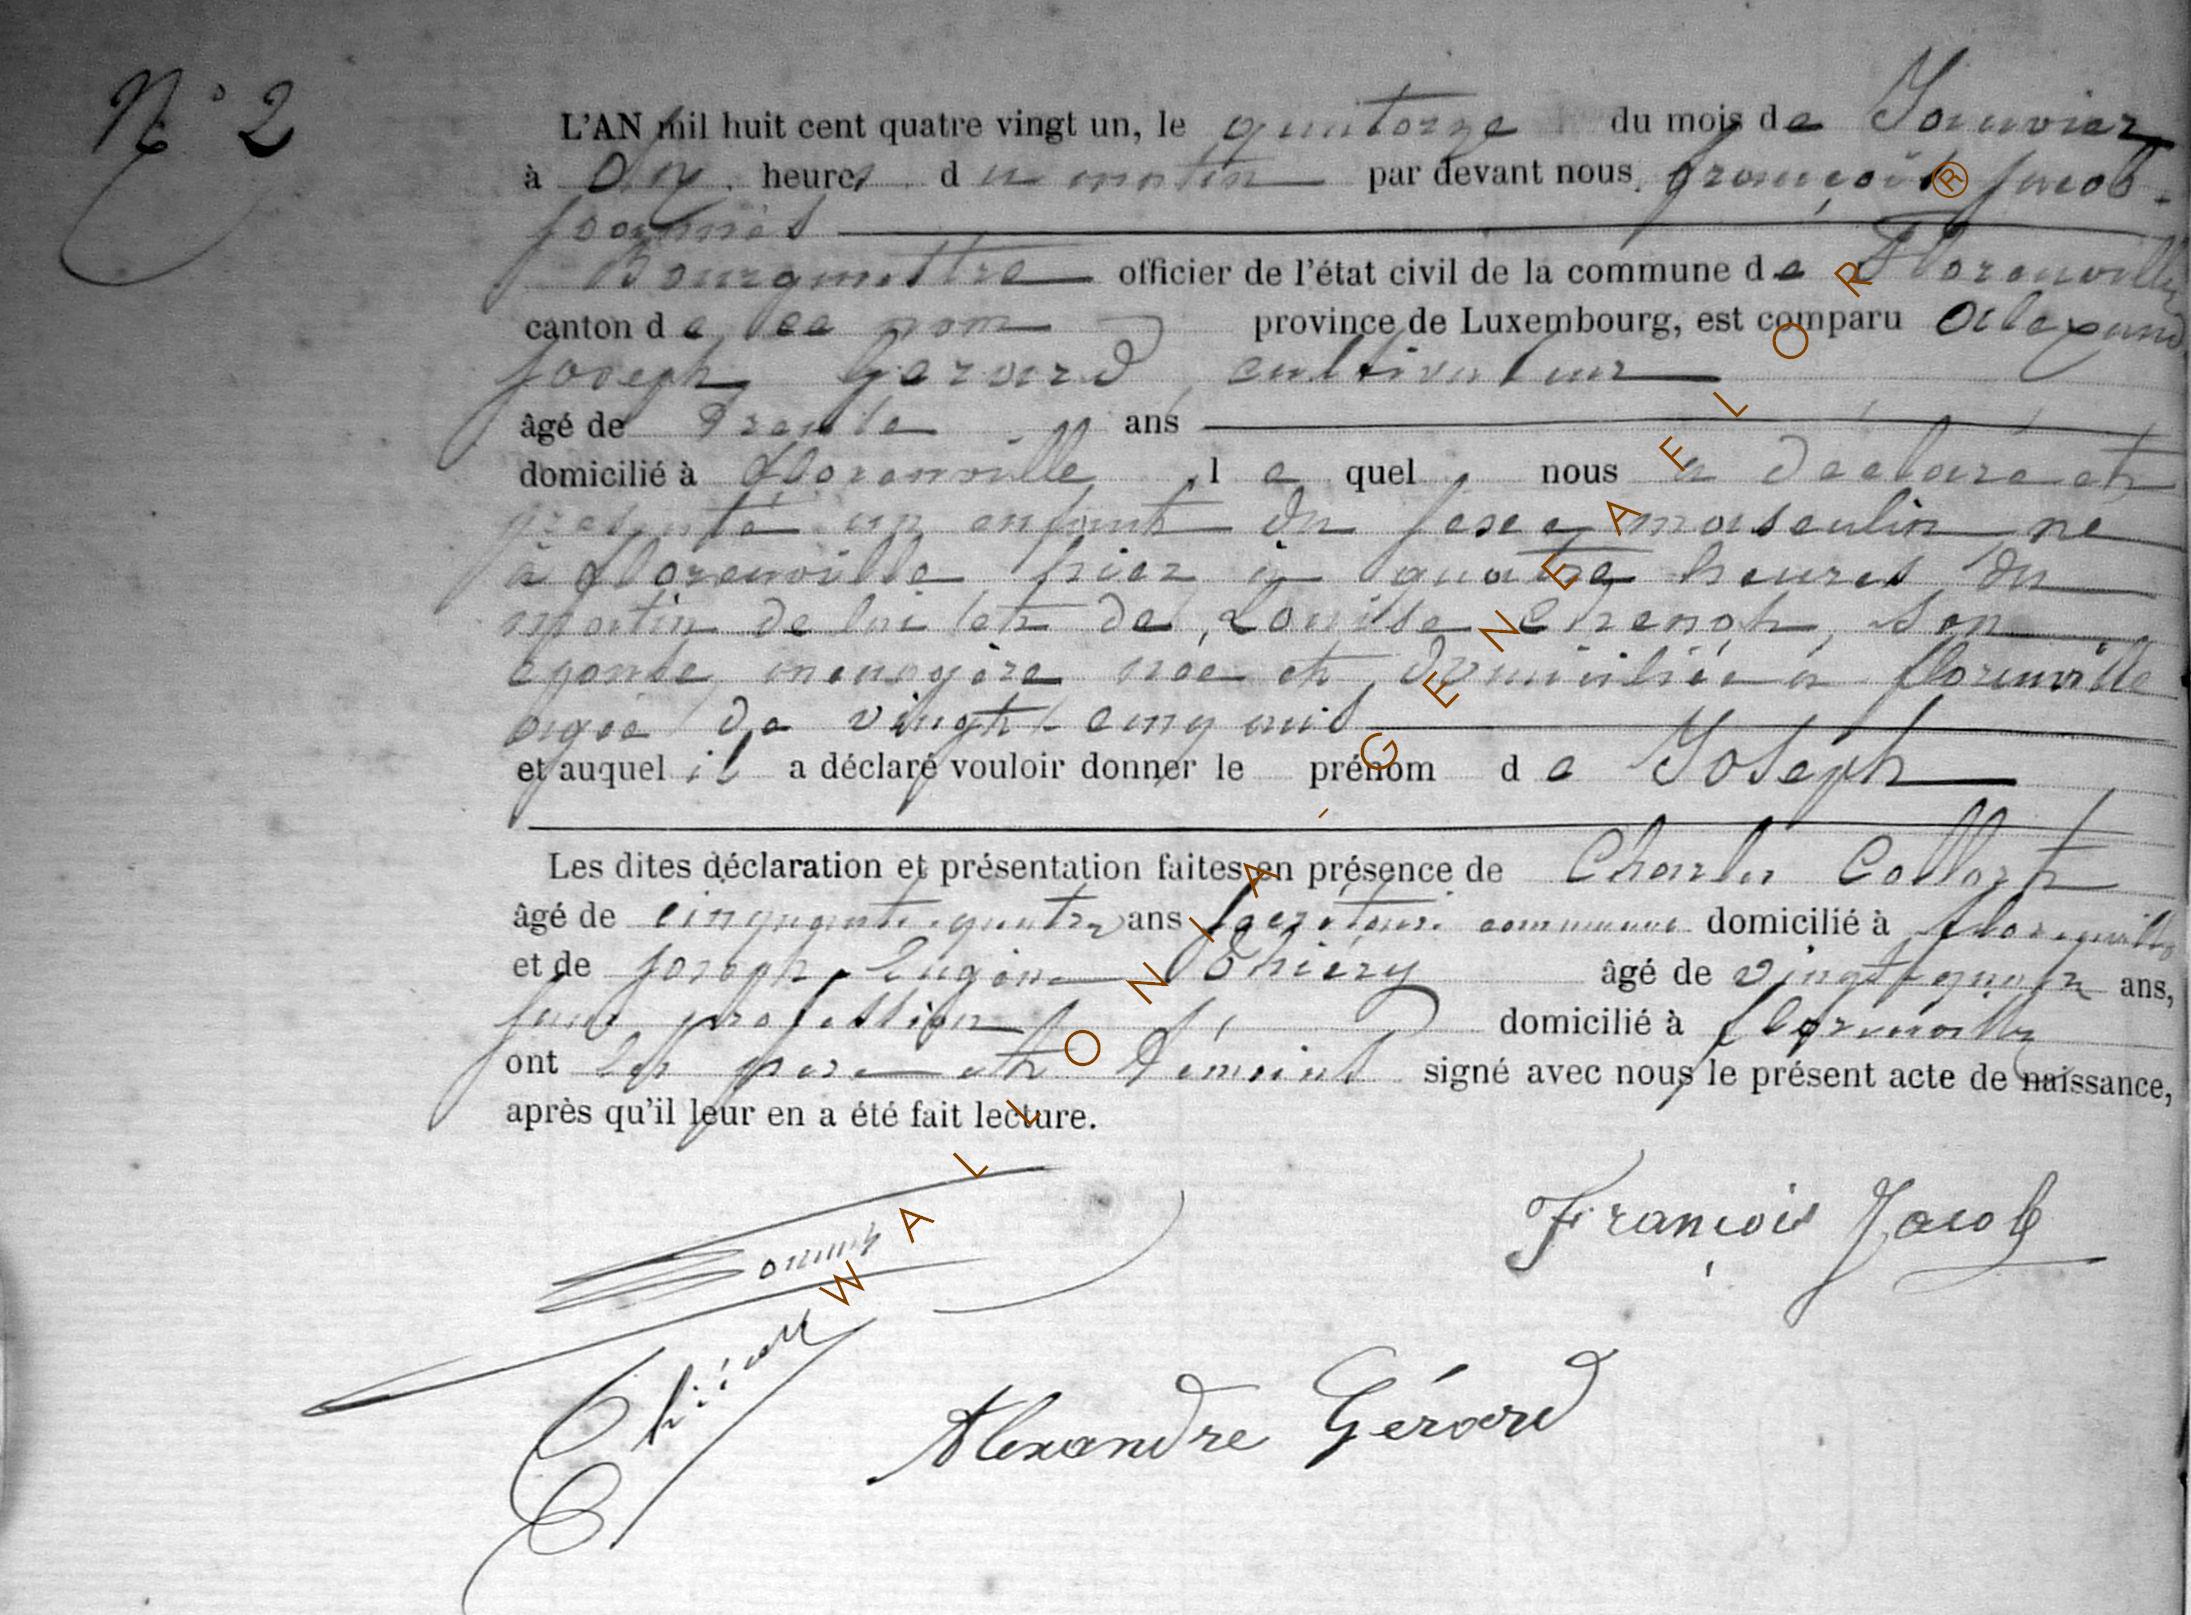 N° 2
L'AN mil huit cent quatre vingt un, le quatorze du mois de Janvier
à dix heures du matin par devant nous, françois Jacob
Bourgmestre officier de l'état civil de la commune de Florenville
canton de ce nom province de Luxembourg, est comparu Alexand
Joseph Gérard, cultivateur
âgé de Trente ans
domicilié à florenville, lequel nous a déclaré et
présenté un enfant du sexe masculin né
à florenville hier à quatre heures du
matin de lui et de Louise son
épouse ménagère née et domiciliée à florenville
agée de vingt cinq ans
et auquel il a déclaré vouloir donner le prénom de Joseph
Les dites déclaration et présentation faites en présence de Charles Collart
âgé de cinquante-quatre ans secrétaire communal domicilié à florenville
et de Joseph Eugène Thiéry âgé de vingt-quatre ans,
sans profession domicilié à florenville
ont les père et témoins signé avec nous le présent acte de naissance,
après qu'il leur en a été fait lecture.
François Jacob
Thiéry
Alexandre Gérard
WALLONIA - GENEAFLOR ®